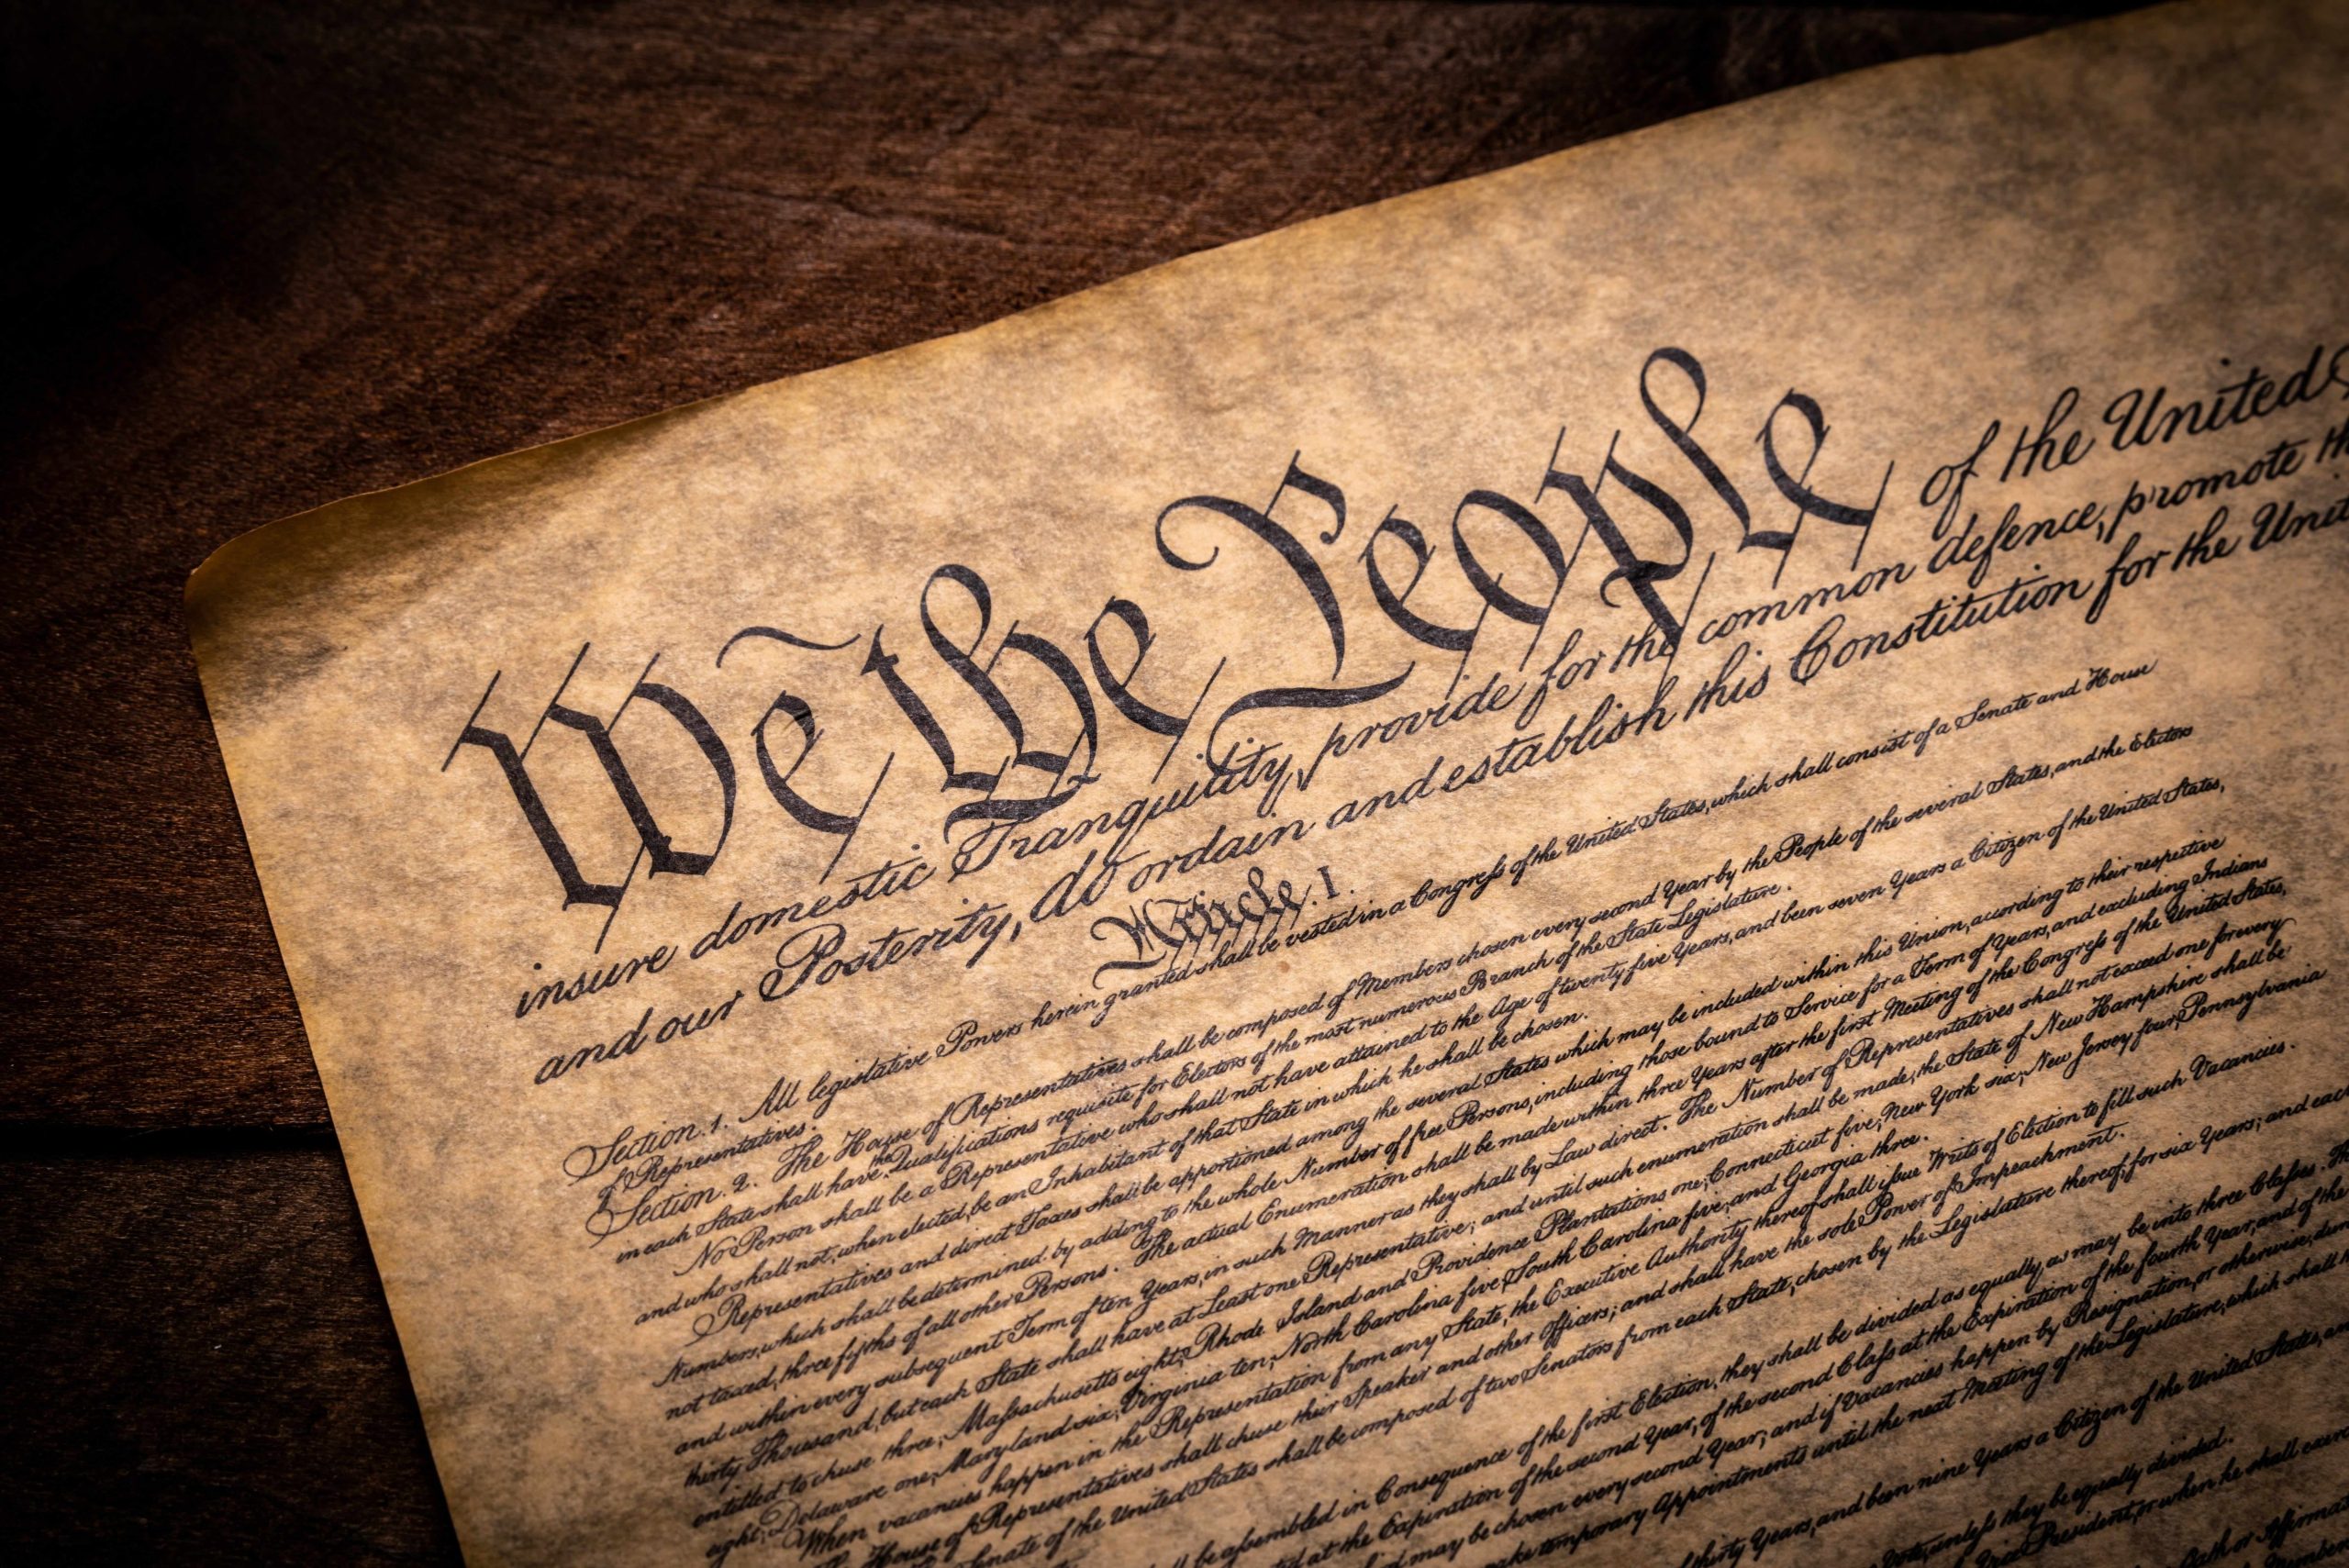 We the People of the United
insure domestic Tranquility, provide for the common defence, promote
and our Posterity, do ordain and establish this Constitution for the
Article. I.
Section. 1. All legislative Powers herein granted shall be vested in a Congreſs of the United States, which shall consist of a Senate and House
of Representatives.
Section. 2. The House of Representatives shall be composed of Members chosen every second Year by the People of the several States, and the Electors
in each State shall have the Qualifications requisite for Electors of the most numerous Branch of the State Legislature.
No Person shall be a Representative who shall not have attained to the Age of twenty five Years, and been seven Years a Citizen of the United States,
and who shall not, when elected, be an Inhabitant of that State in which he shall be chosen.
Representatives and direct Taxes shall be apportioned among the several States which may be included within this Union, according to their respective
Numbers, which shall be determined by adding to the whole Number of free Persons, including those bound to Service for a Term of Years, and excluding Indians
not taxed, three fifths of all other Persons. The actual Enumeration shall be made within three Years after the first Meeting of the Congreſs of the United States,
and within every subsequent Term of ten Years, in such Manner as they shall by Law direct. The Number of Representatives shall not exceed one for every
thirty Thousand, but each State shall have at Least one Representative; and until such enumeration shall be made, the State of New Hampshire shall be
entitled to chuse three, Maſsachusetts eight, Rhode Island and Providence Plantations one, Connecticut five, New York six, New Jersey four, Pennsylvania
eight, Delaware one, Maryland six, Virginia ten, North Carolina five, South Carolina five, and Georgia three.
When vacancies happen in the Representation from any State, the Executive Authority thereof shall iſsue Writs of Election to fill such Vacancies.
House of Representatives shall chuse their Speaker and other Officers; and shall have the sole Power of Impeachment.
Senate of the United States shall be composed of two Senators from each State, chosen by the Legislature thereof, for six Years; and each
be aſsembled in Consequence of the first Election, they shall be divided as equally as may be into three Claſses.
at the Expiration of the second Year, of the second Claſs at the Expiration of the fourth Year, and of the
may be chosen every second Year; and if Vacancies happen by Resignation, or otherwise,
make temporary Appointments until the next Meeting of the Legislature, which shall
thirty Years, and been nine Years a Citizen of the United States,
unleſs they be equally divided.
President, or when he shall
Oath or